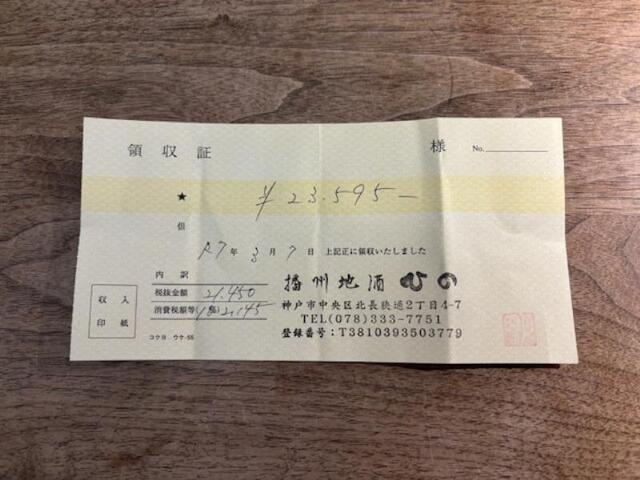 領収証 様 No.
★ ¥23.595-
但
R7年 3月 7日 上記正に領収いたしました
内訳
税抜金額 21.450
消費税額等( %) 2.145
収入
印紙
コクヨ ウケ-55
播州地酒 ひの
神戸市中央区北長狭通2丁目4-7
TEL(078)333-7751
登録番号:T3810393503779